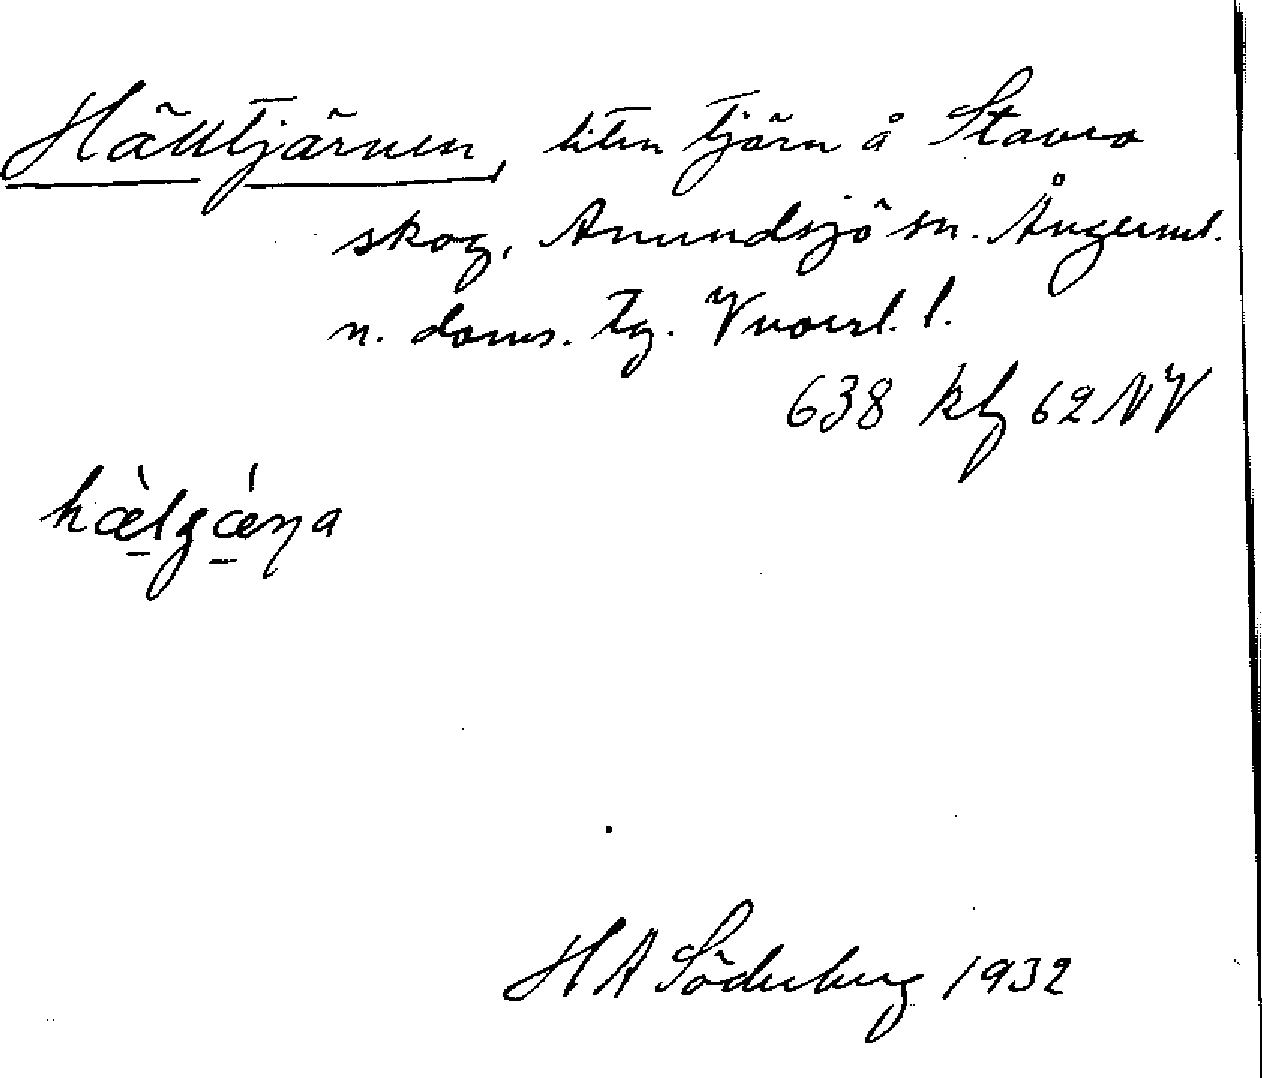 Hälltjärnen, liten tjärn å Stavro
skog, Anundsjö sn. Ångerml.
n. doms. tg. Vnorrl. l.
638 kbl 62 NV
hæ̀lʒǽɳa
H A Söderberg 1932